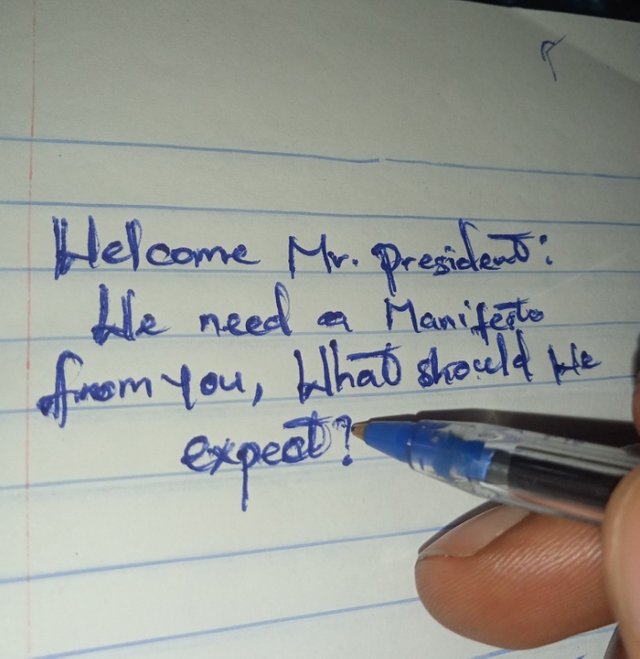 Welcome Mr. president:
We need a Manifesto
from you, What should We
expect?